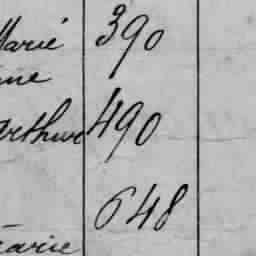 Marie 390
ine
Arthur 490
648
Marie